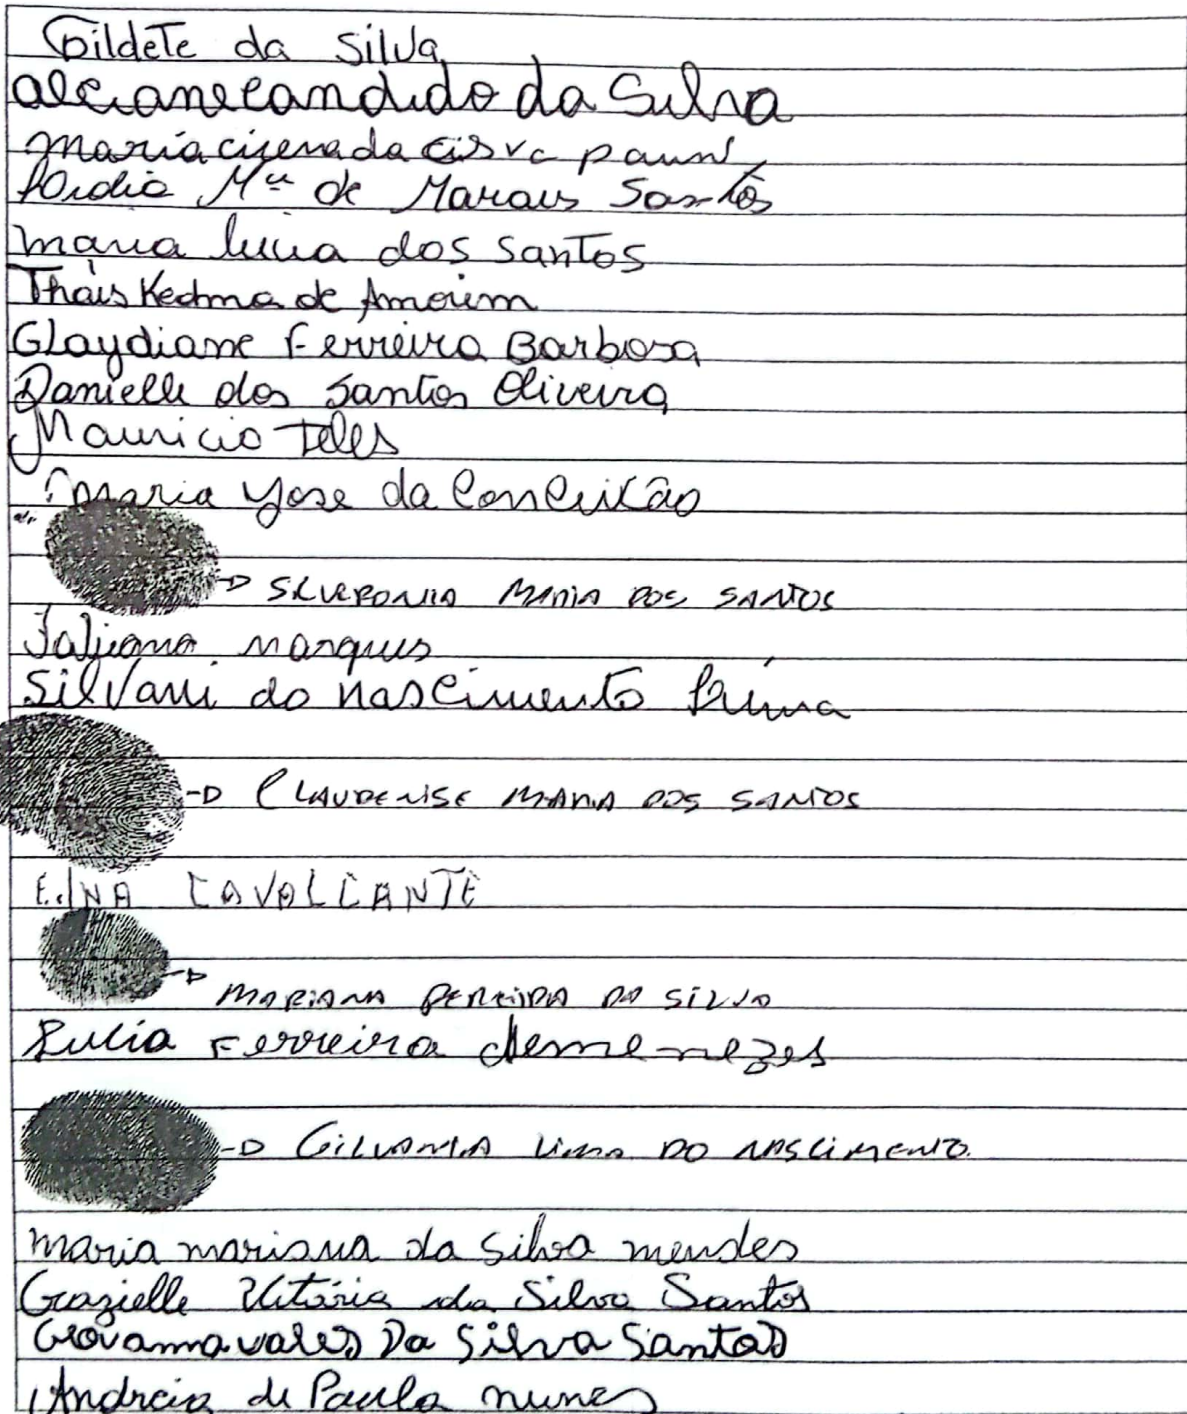 Gildete da Silva
alcianecandido da Silva
maria cicera da
Mª de Morais Santos
maria lucia dos santos
Thais Kedma de Amorim
Glaydiane Ferreira Barbosa
Danielle dos Santos Oliveira
Mauricio Teles
maria yose da Conceicão
MARIA DOS SANTOS
marques
Silvani do nascimento
CLAUDENISE MARIA DOS SANTOS
EDNA CAVALCANTE
MARIANA PEREIRA DA SILVA
Lucia Ferreira demenezes
GILVANIA LIMA DO NASCIMENTO
maria mariana da silva mendes
Grazielle Vitória da Silva Santos
Geovanna vales Da Silva Santos
Andreia de Paula nunes